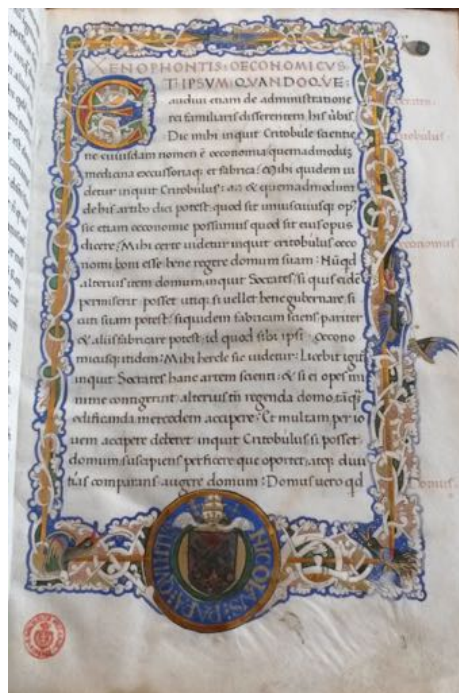 XENOPHONTIS: OECONOMICVS
ET IPSVM: QVANDOQVE:
audiui etiam de administratione
rei familiaris differentem his ũbis
Dic mihi inquit Critobule scientie
ne cuiusdam nomen ē oeconomia quemadmoduȝ
medicina excussoriaqȝ et fabrica: Mihi quidem ui
detur inquit Critobulus: an & quemadmodum
de his artibȝ dici potest quod sit uniuscuiusqȝ opꝰ
sic etiam oeconomie possumus quod sit eius opus
dicere: Mihi certe uidetur inquit critobulus oeco
nomi boni esse bene regere domum suam: Nūqd
alterius item domum inquit Socrates si quis eidē
permiserit: posset utiqȝ si uellet bene gubernare si
cuti suam potest: siquidem fabricam sciens pariter
& aliis fabricare potest id quod sibi ipsi: oecono
micus itidem: Mihi hercle sic uidetur: Licebit igit
inquit Socrates hanc artem scienti: & si ei opes mi
nime contigerint alterius tn̄ regenda domo tāqꝫ
edificanda mercedem accipere: Et multam per io
uem accipere deberet inquit Critobulus si posset
domum suscipiens perficere que oportet: atqȝ diui
tiis comparans augere domum: Domus uero qd
NICOLVS: PAPA: QVINTV
oeconomus
Domus